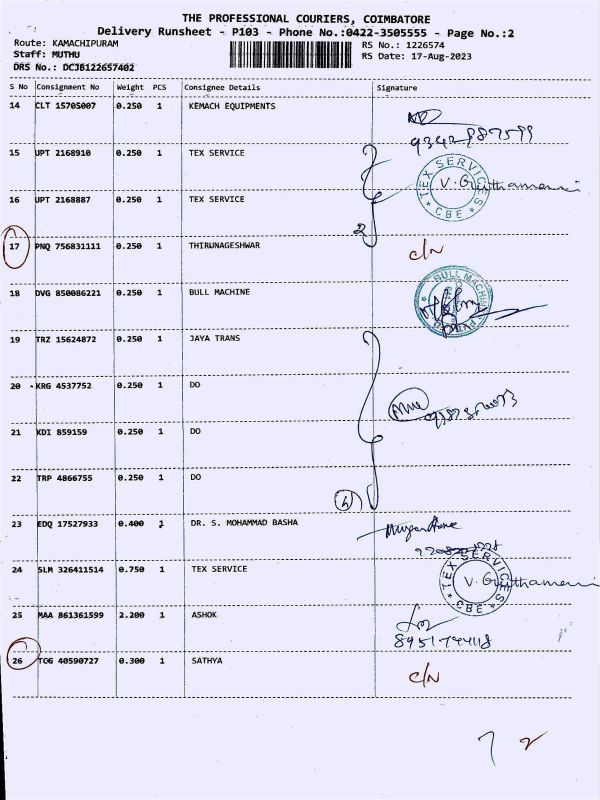 THE PROFESSIONAL COURIERS, COIMBATORE
Delivery Runsheet - P103 - Phone No.:0422-3505555 - Page No.:2
Route: KAMACHIPURAM RS No.: 1226574
Staff: MUTHU RS Date: 17-Aug-2023
DRS No.: DCJB122657402
S No Consignment No Weight PCS Consignee Details Signature
14 CLT 15705007 0.250 1 KEMACH EQUIPMENTS
15 UPT 2168910 0.250 1 TEX SERVICE
TEX SERVICES CBE
16 UPT 2168887 0.250 1 TEX SERVICE
2
17 PNQ 756831111 0.250 1 THIRUNAGESHWAR c/N
18 DVG 850086221 0.250 1 BULL MACHINE
19 TRZ 15624872 0.250 1 JAYA TRANS
20 KRG 4537752 0.250 1 DO
21 KDI 859159 0.250 1 DO
22 TRP 4866755 0.250 1 DO
23 EDQ 17527933 0.400 1 DR. S. MOHAMMAD BASHA
24 SLM 326411514 0.750 1 TEX SERVICE
TEX SERVICES CBE
25 MAA 861361599 2.200 1 ASHOK
26 TCG 40590727 0.300 1 SATHYA c/N
2